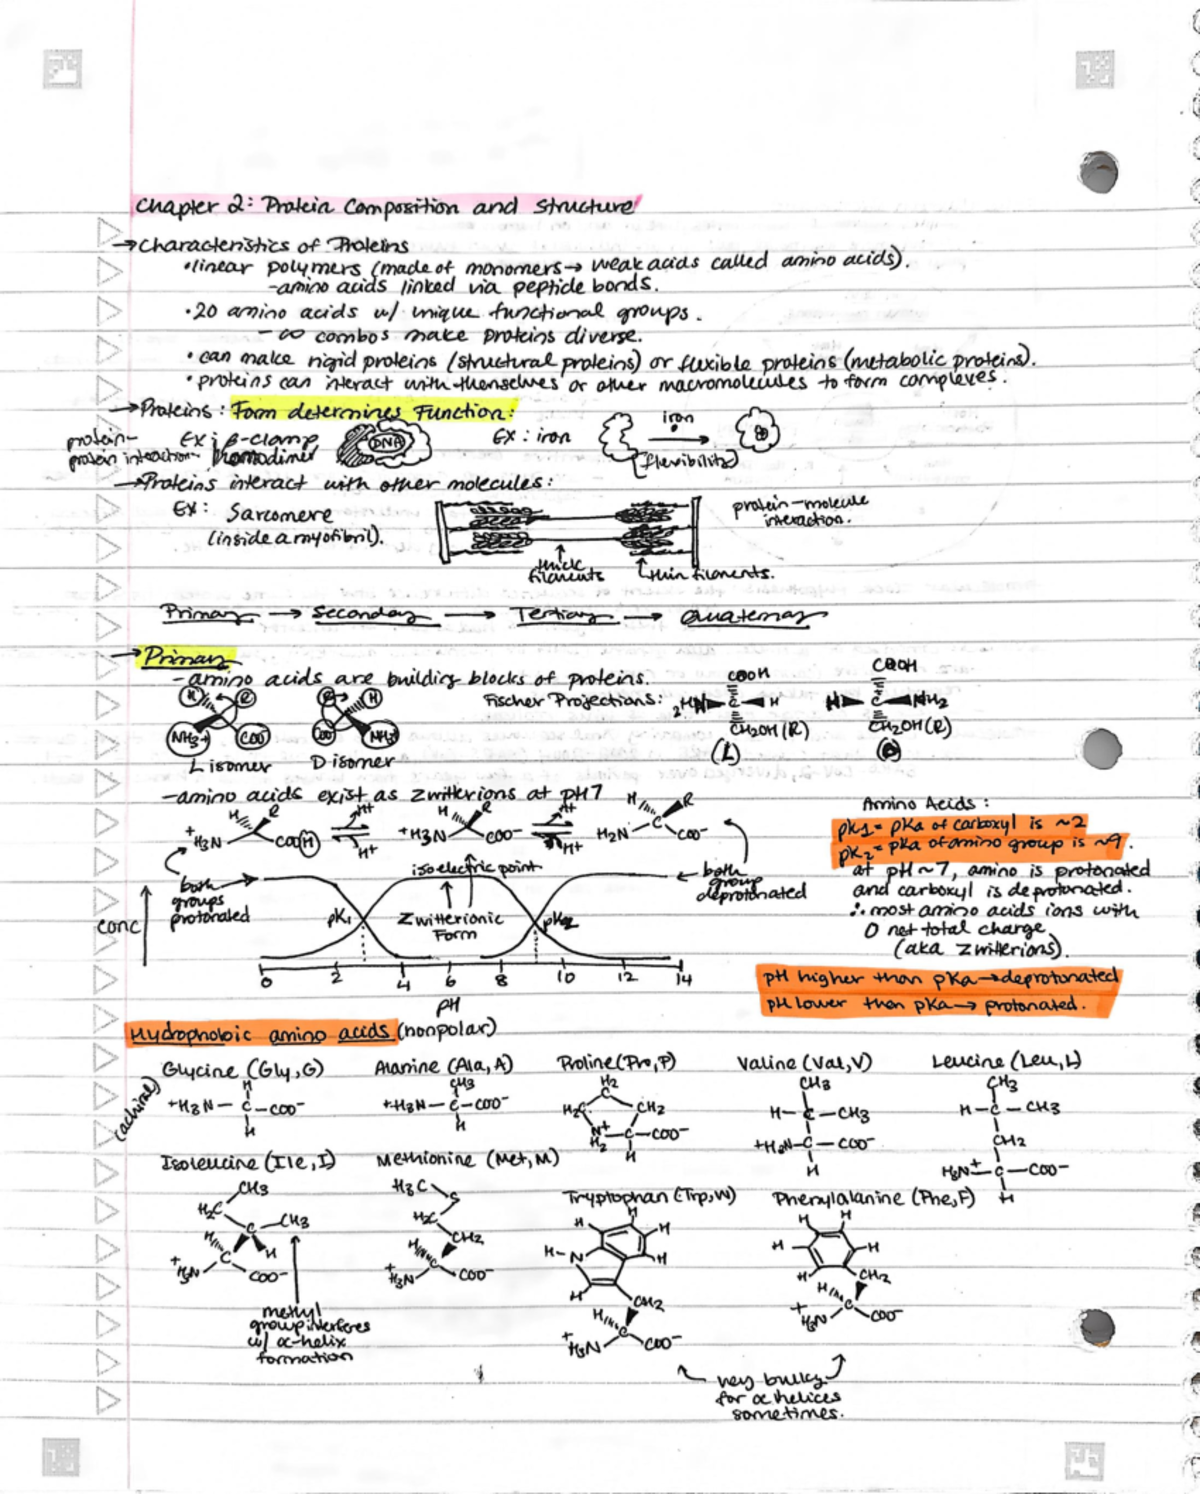 Chapter 2: Protein Composition and Structure
→Characteristics of Proteins
•linear polymers (made of monomers→ weak acids called amino acids).
-amino acids linked via peptide bonds.
•20 amino acids w/ unique functional groups.
- ∞ combos make proteins diverse.
• can make rigid proteins (structural proteins) or flexible proteins (metabolic proteins).
• proteins can interact with themselves or other macromolecules to form complexes.
→Proteins: Form determines Function:
protein-protein interaction
Ex: β-clamp homodimer
DNA
Ex: iron
iron
(flexibility)
→Proteins interact with other molecules:
Ex: Sarcomere
(inside a myofibril).
thick filaments
thin filaments.
protein-molecule interaction.
Primary → Secondary → Tertiary → Quaternary
→Primary
-amino acids are building blocks of proteins.
H R NH3+ COO-
L isomer
R H COO- NH3+
D isomer
Fischer Projections:
COOH
2HN C H
CH2OH (R)
(L)
COOH
H C NH2
CH2OH (R)
(D)
-amino acids exist as zwitterions at pH 7
H R +H3N COOH
H+ H+
H R +H3N COO-
H+ H+
H R H2N C COO-
both groups protonated
isoelectric point
both group deprotonated
conc
pK1
Zwitterionic Form
pK2
0 2 4 6 8 10 12 14
pH
Amino Acids:
pK1= pKa of carboxyl is ~2
pK2= pKa of amino group is ~9.
at pH ~7, amino is protonated
and carboxyl is deprotonated.
∴ most amino acids ions with
0 net total charge
(aka zwitterions).
pH higher than pKa→deprotonated
pH lower than pKa→ protonated.
Hydrophobic amino acids (nonpolar)
Glycine (Gly,G)
(achiral)
H
+H3N- C-COO-
H
Alanine (Ala, A)
CH3
+H3N- C-COO-
H
Proline (Pro,P)
H2
C
H2C CH2
N+ C-COO-
H2 H
Valine (Val,V)
CH3
H- C-CH3
+H3N-C- COO-
H
Leucine (Leu,L)
CH3
H-C-CH3
CH2
H3N+-C-COO-
H
Isoleucine (Ile,I)
CH3
H2C
C-CH3
H H
C
+H3N COO-
methyl
group interferes
w/ α-helix
formation
Methionine (Met,M)
H3C S
H2C
CH2
H C
+H3N COO-
Tryptophan (Trp,W)
H
H H
H-N H
H CH2
H C
+H3N COO-
Phenylalanine (Phe,F)
H H
H H
H CH2
H C
+H3N COO-
very bulky
for α helices
sometimes.